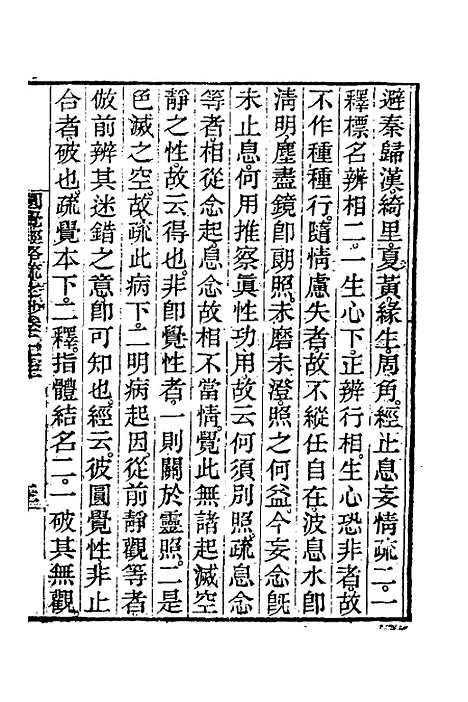 避秦歸漢綺里夏黃緣生周角經止息妄情疏二一
釋標名辨相二一生心下正辨行相生心恐非者故
不作種種行隨情慮失者故不縱任自在波息水卽
淸明塵盡鏡卽朗照水磨未澄照之何益今妄念旣
未止息何用推察眞性功用故云何須別照疏息念
等者相從念起息念故相不當情覺此無諸起滅空
靜之性故云得也非卽覺性者一則關於靈照二是
色滅之空故疏此病下二明病起因從前靜觀等者
倣前辨其迷錯之意卽可知也經云彼圓覺性非止
合者破也疏覺本下二釋指體結名二一破其無觀
圓覺經略疏之鈔卷二十五